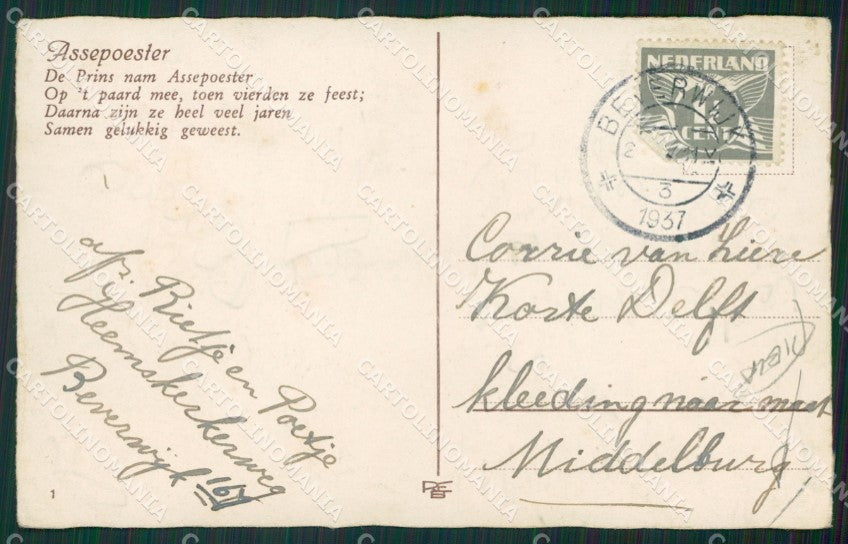 Assepoester
De Prins nam Assepoester
Op 't paard mee, toen vierden ze feest;
Daarna zijn ze heel veel jaren
Samen gelukkig geweest.
NEDERLAND
CENT
BEVERWIJK
3
1937
afz. Rietje en Poetje
Heemskerkerweg
Beverwijk 167
Corrie van Liere
Korte Delft
kleeding naar maat
Middelburg
1
CARTOLINOMANIA